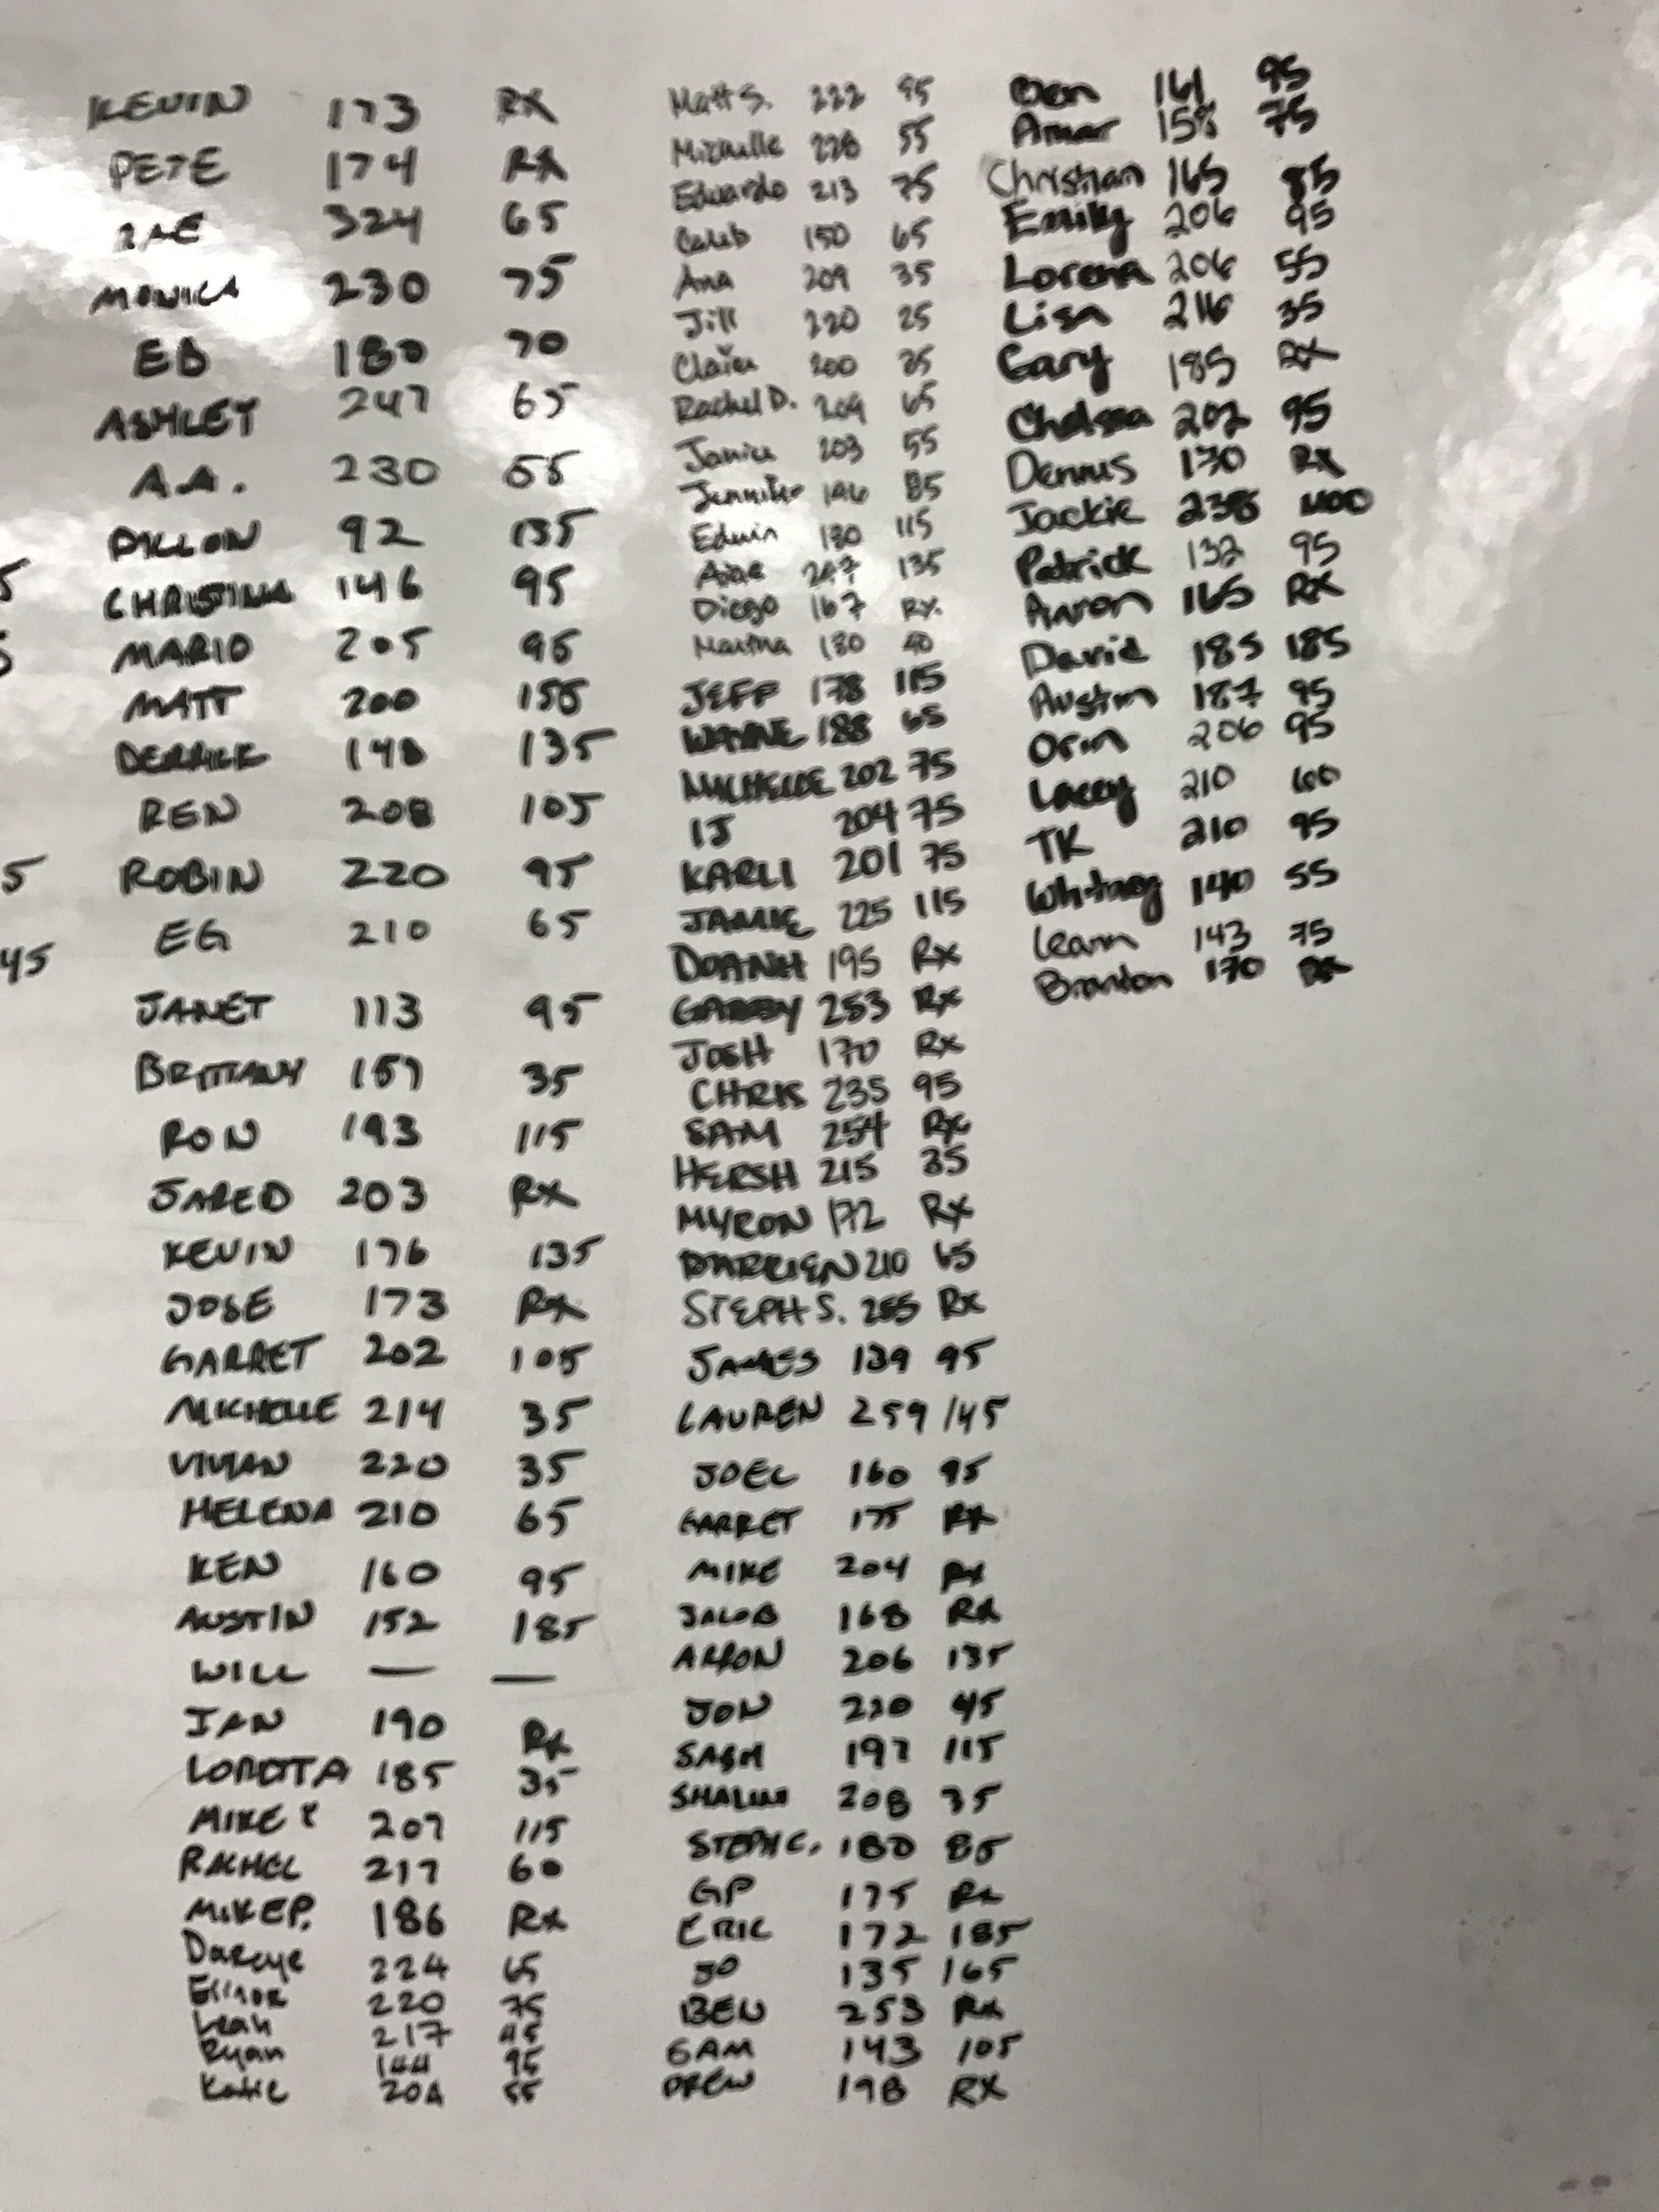 KEVIN 173 RX
PETE 174 RX
RAE 324 65
MONICA 230 75
EB 180 70
ASHLEY 247 65
A.A. 230 55
DILLON 92 135
5
CHRISTINA 146 95
MARIO 205 95
MATT 200 155
DERRICK 148 135
REN 208 105
5
ROBIN 220 95
EG 210 65
45
JANET 113 95
BRITTANY 157 35
RON 193 115
JARED 203 RX
KEVIN 176 135
JOSE 173 RX
GARRET 202 105
MICHELLE 214 35
VIVIAN 220 35
HELENA 210 65
KEN 160 95
AUSTIN 152 185
WILL — —
IAN 190 RX
LORETTA 185 35
MIKE 207 115
RACHEL 217 60
MIKE P. 186 RX
Darcye 224 65
Elinor 220 75
Leah 217 45
Ryan 144 95
Katie 204 55
Matt S. 222 95
Michelle 228 55
Eduardo 213 75
Caleb 150 65
Ana 209 35
Jill 220 25
Claire 200 35
Rachel D. 209 65
Janice 203 55
Jennifer 146 85
Edwin 180 115
247 135
Diego 167 RX
Marina 180
JEFF 178 115
WAYNE 188 65
MICHELLE 202 75
IJ 204 75
KARLI 201 75
JAMIE 225 115
DOANH 195 Rx
GABBY 253 Rx
JOSH 170 Rx
CHRIS 235 95
SAM 254 Rx
HERSH 215 35
MYRON 172 Rx
DARRIEN 210 65
STEPH S. 255 Rx
JAMES 139 95
LAUREN 259 145
JOEL 160 95
GARRET 175 RX
MIKE 204 RX
JACOB 168 RX
ARRON 206 135
JON 220 45
SASH 197 115
208 35
STEPH C. 180 85
GP 175 Rx
ERIC 172 185
JO 135 165
BEN 253 Rx
SAM 143 105
DREW 198 RX
Ben 161 95
Amar 158 75
Christian 165 85
Emily 206 95
Lorena 206 55
Lisa 216 35
Gary 185 RX
Chelsea 202 95
Dennis 170 Rx
Jackie 238 MOD
Patrick 132 95
Aaron 165 RX
David 185 185
Austin 187 95
Orin 206 95
Lacey 210 60
TK 210 95
Whitney 140 55
Leann 143 75
Branton 170 RX